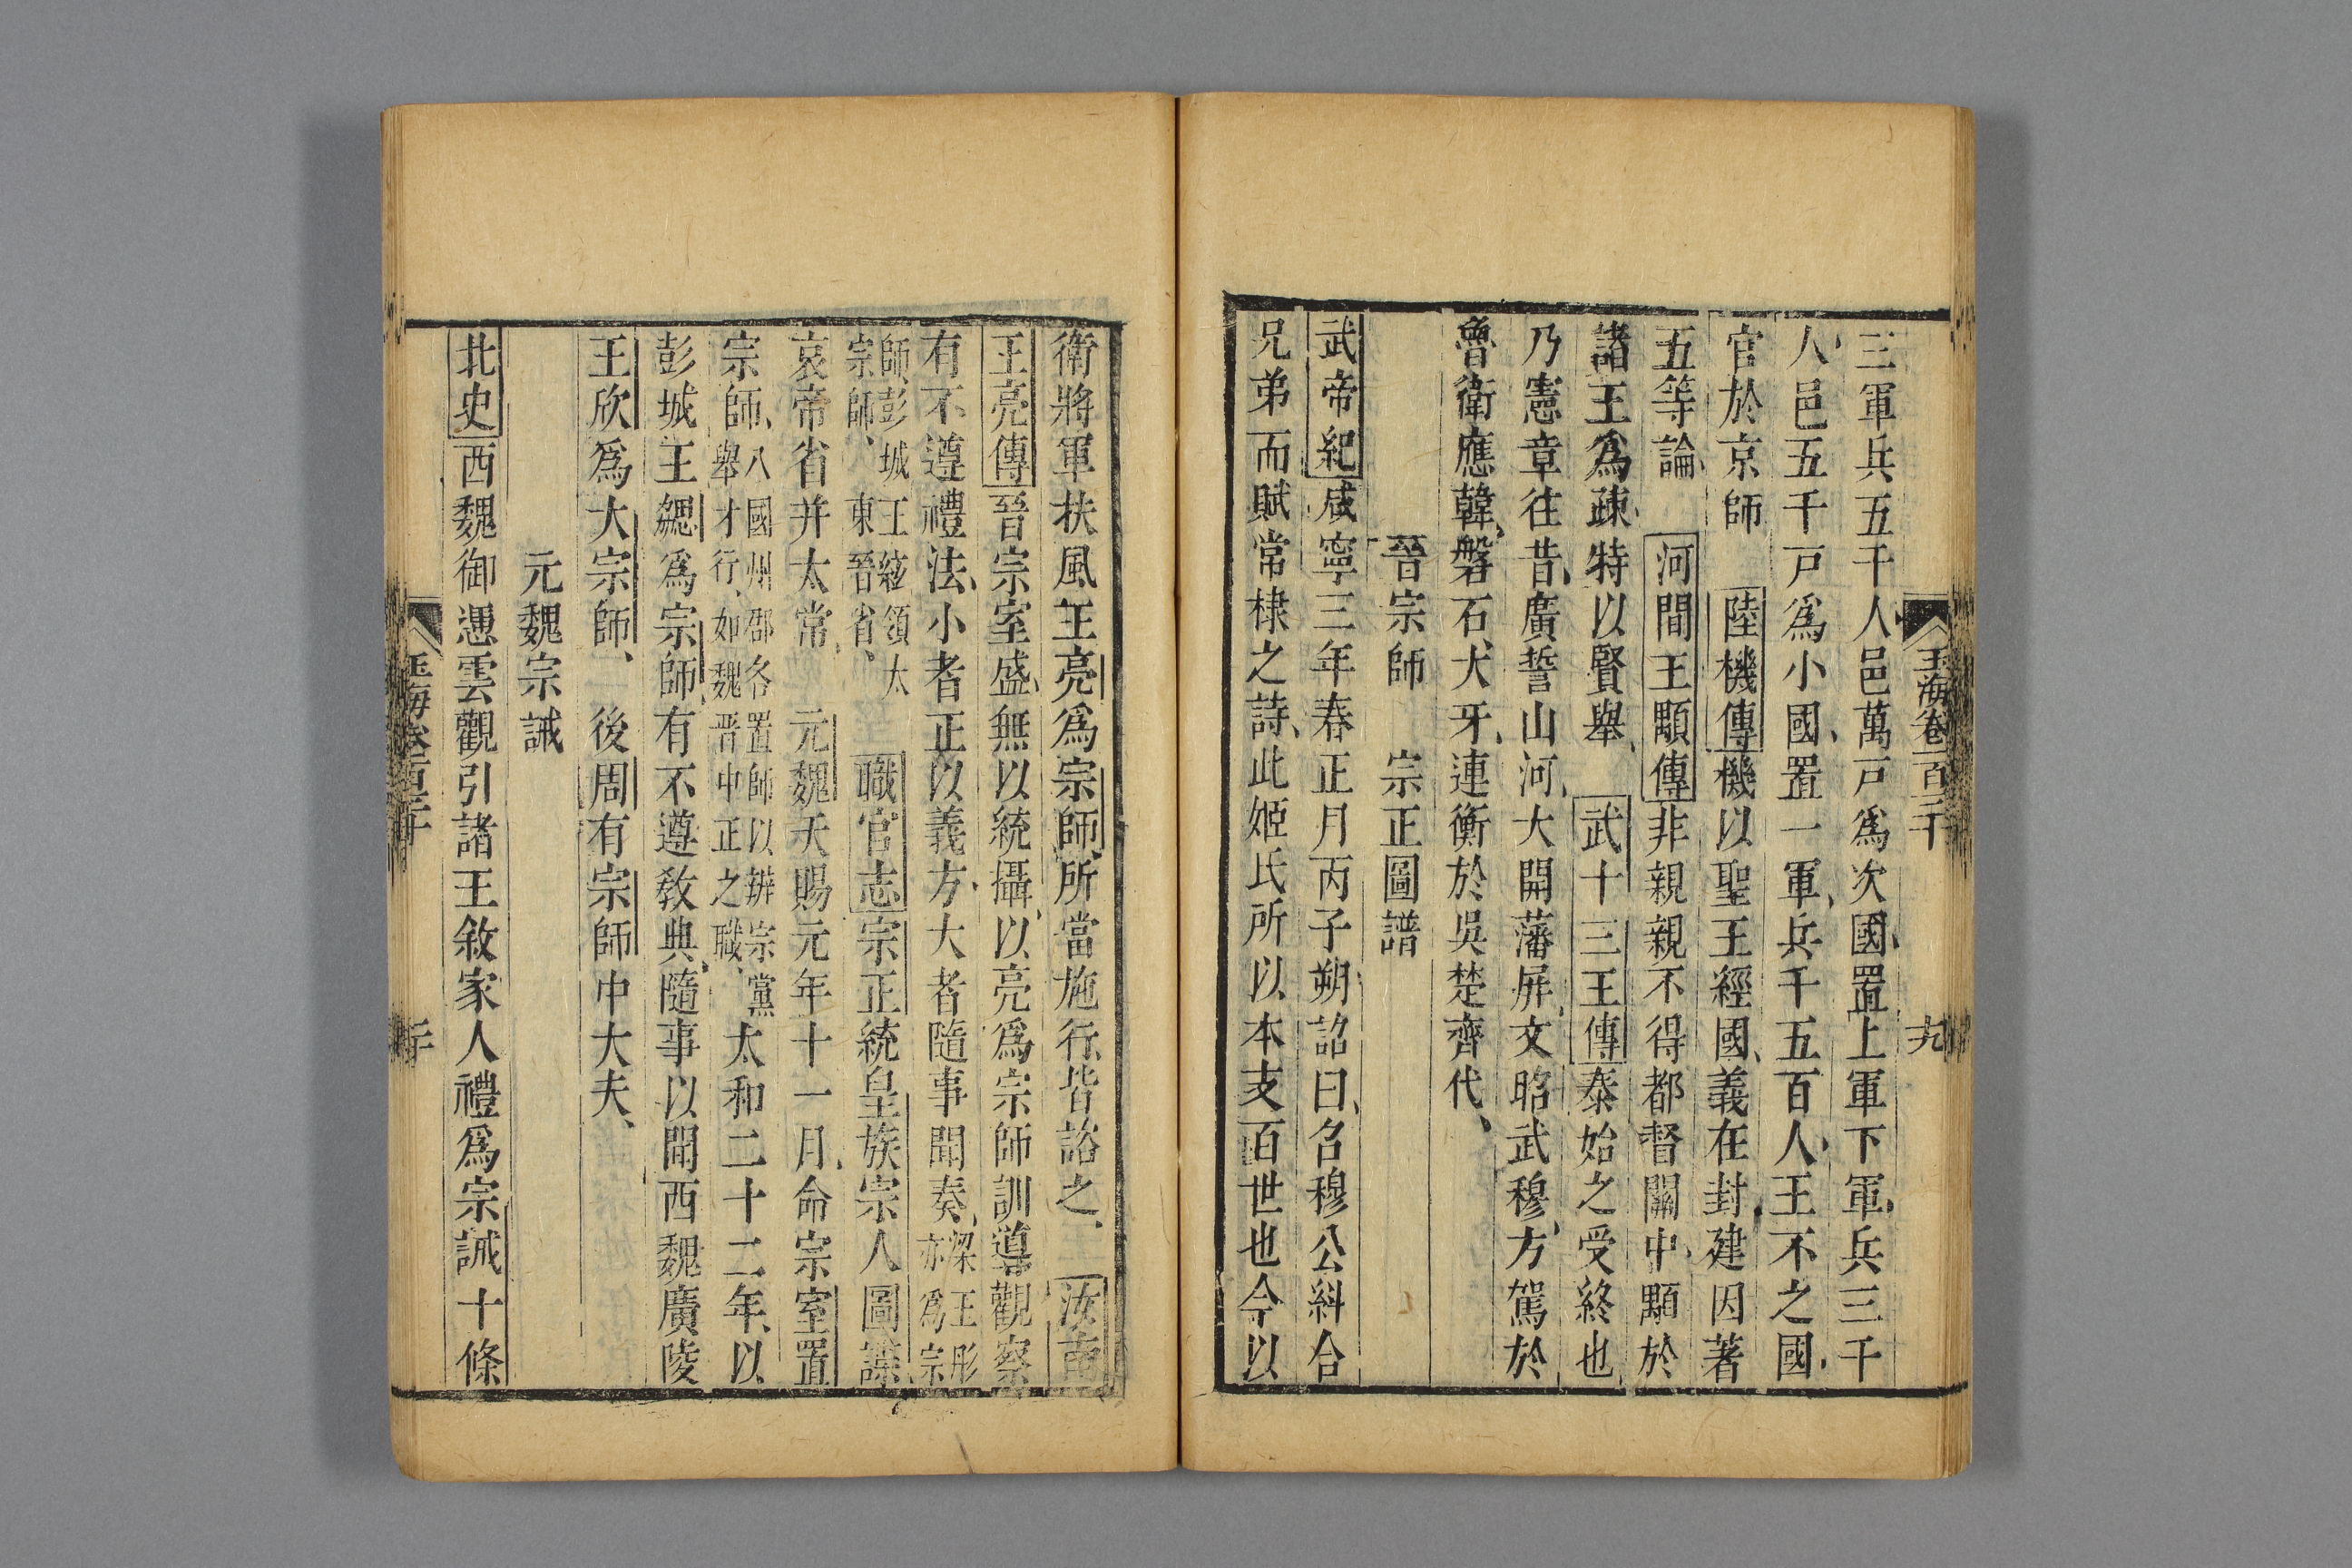 玉海卷一百三十
十九
三軍兵五千人邑萬戸爲次國置上軍下軍兵三千
人邑五千戸爲小國置一軍兵千五百人王不之國
官於京師 陸機傳機以聖王經國義在封建因著
五等論 河間王顒傳非親親不得都督關中顒於
諸王爲疎特以賢舉 武十三王傳泰始之受終也
乃憲章往昔廣誓山河大開藩屏文昭武穆方駕於
魯衛應韓磐石犬牙連衡於吳楚齊代
晉宗師 宗正圖譜
武帝紀咸寧三年春正月丙子朔詔曰名穆公糾合
兄弟而賦常棣之詩此姬氏所以本支百世也今以
衛將軍扶風王亮爲宗師所當施行皆諮之 汝南
王亮傳晉宗室盛無以統攝以亮爲宗師訓導觀察
有不遵禮法小者正以義方大者隨事聞奏梁王肜
亦爲宗
師彭城王紘領太
宗師東晉省 職官志宗正統皇族宗人圖諜
哀帝省并太常 元魏天賜元年十一月命宗室置
宗師八國州郡各置師以辨宗黨
舉才行如魏晉中正之職太和二十二年以
彭城王勰爲宗師有不遵敎典隨事以聞西魏廣陵
王欣爲大宗師 後周有宗師中大夫
元魏宗誡
北史西魏御憑雲觀引諸王敘家人禮爲宗誡十條
玉海卷一百三十
二十